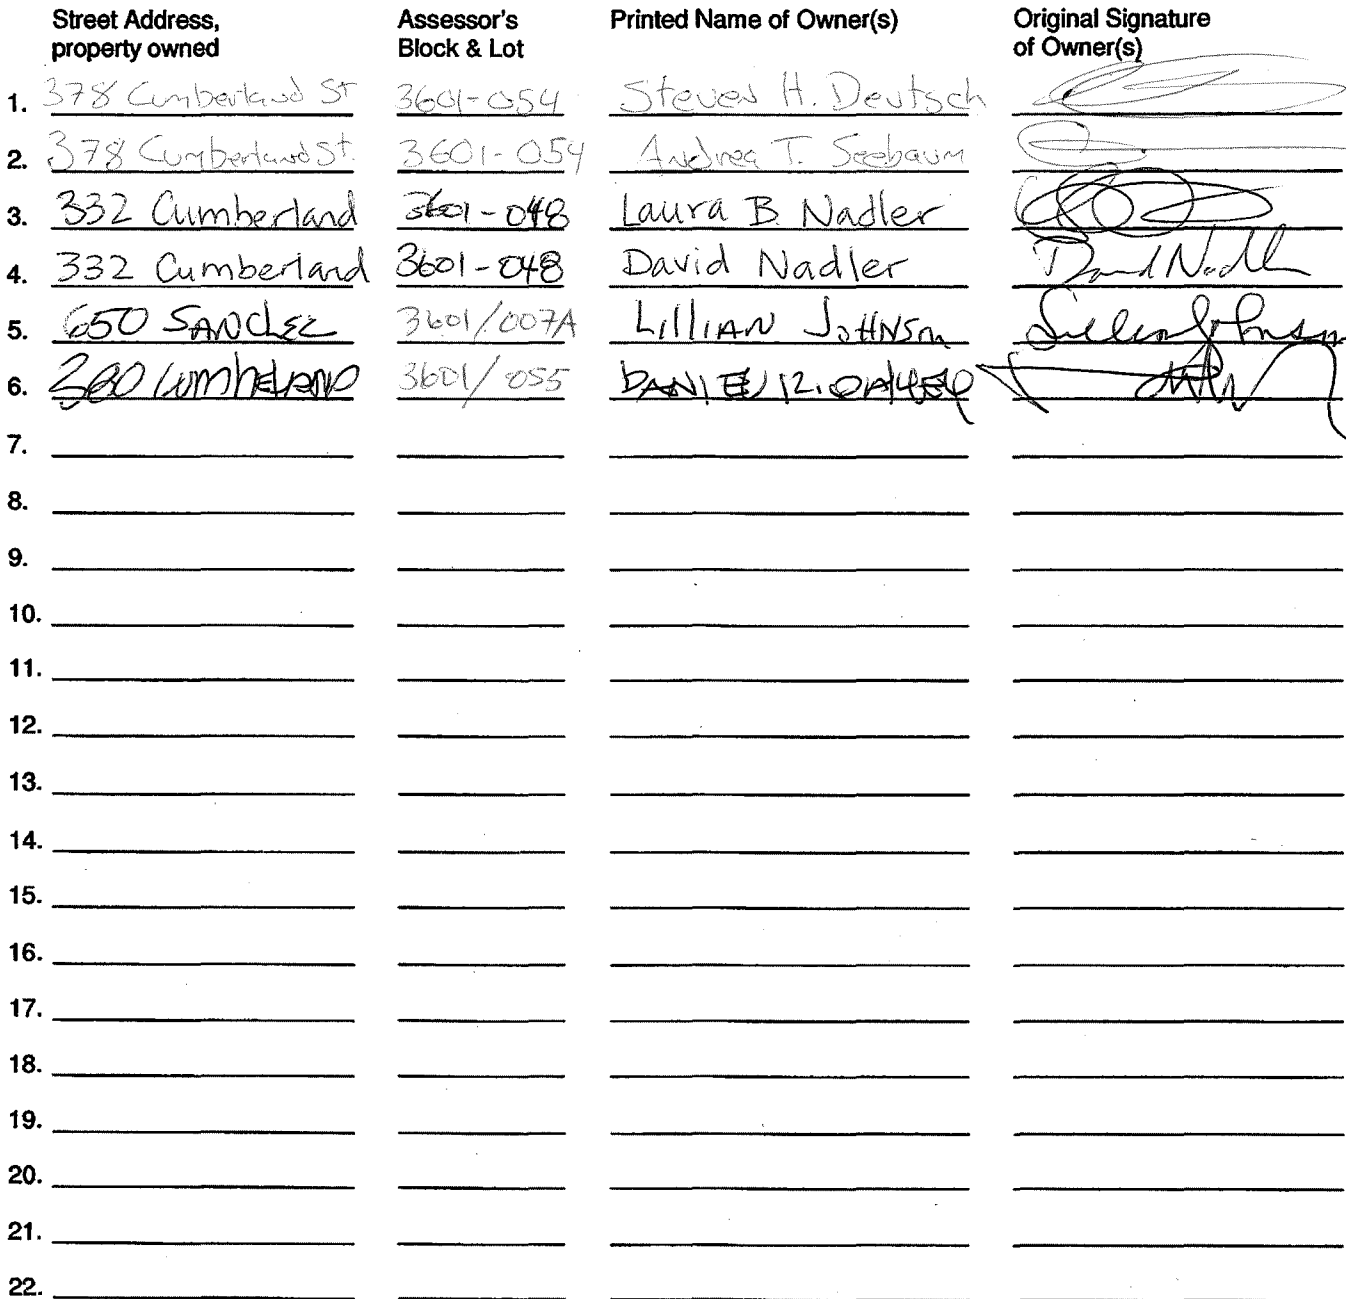 Street Address, property owned Assessor's Block & Lot Printed Name of Owner(s) Original Signature of Owner(s)
1. 378 Cumberland St 3601-054 Steven H. Deutsch
2. 378 Cumberland St. 3601-054 Andrea T. Seebaum
3. 332 Cumberland 3601-048 Laura B. Nadler
4. 332 Cumberland 3601-048 David Nadler David Nadler
5. 650 SANCHEZ 3601/007A LILLIAN JOHNSON Lillian Johnson
6. CUMBERLAND 3601/055 DANIEL
7.
8.
9.
10.
11.
12.
13.
14.
15.
16.
17.
18.
19.
20.
21.
22.